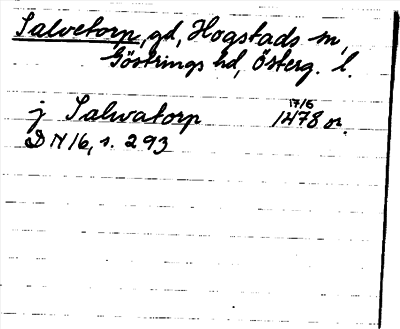 Salvetorp, gd, Hogstads sn,
Göstrings hd, Österg. l.
17/6
j Salwatorp 1478 or.
DN 16, s. 293